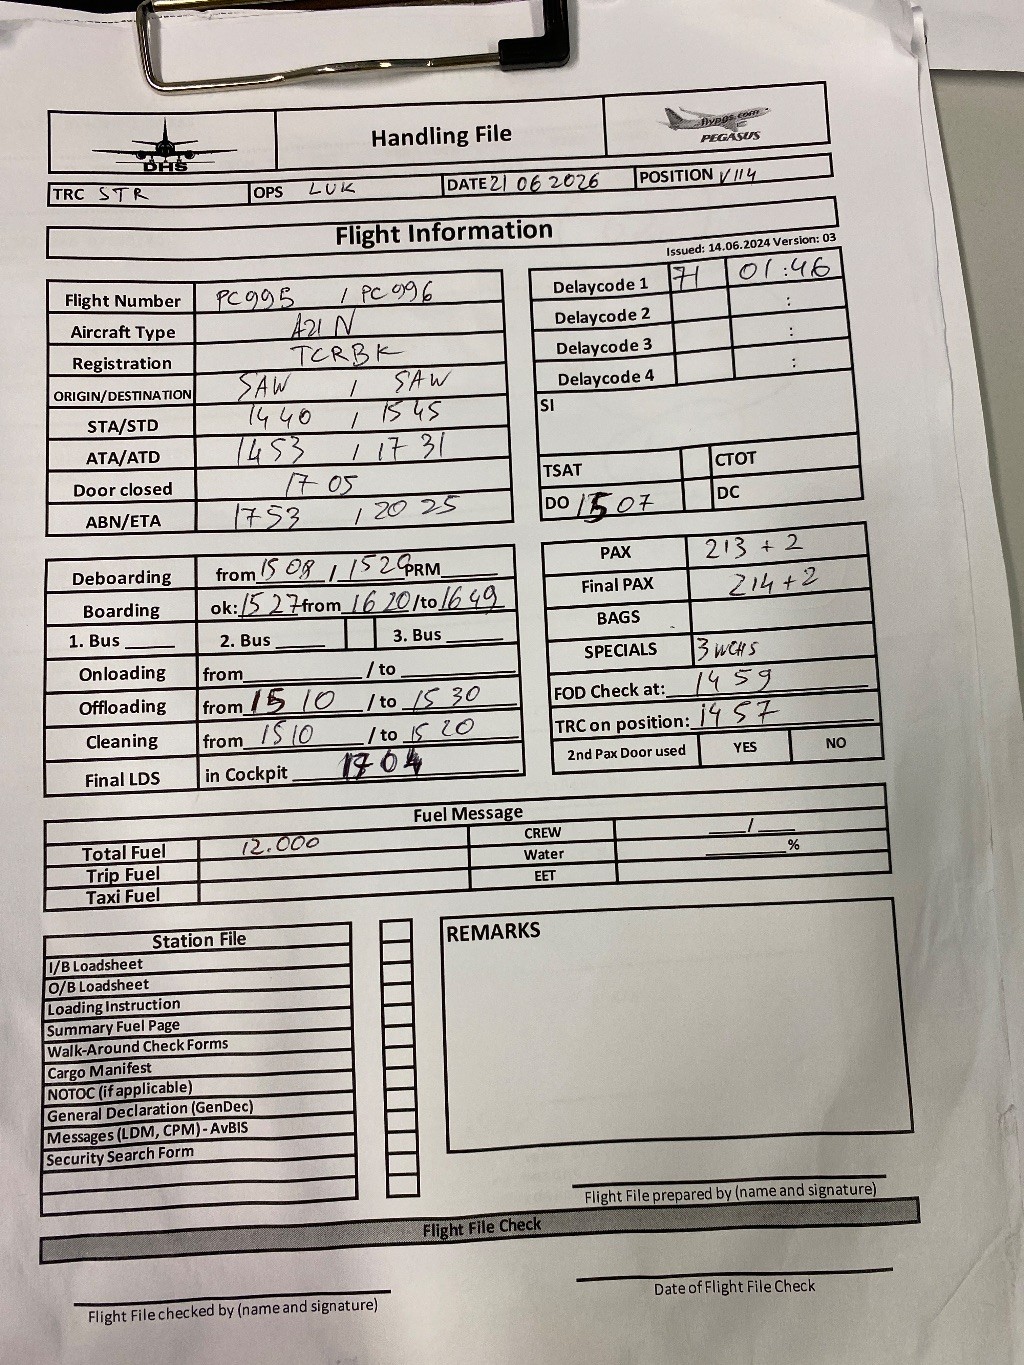 DHS
Handling File
flypgs.com
PEGASUS
TRC STR OPS LUK DATE 21 06 2026 POSITION V114
Flight Information
Issued: 14.06.2024 Version: 03
Flight Number PC995 / PC996
Aircraft Type A21N
Registration TCRBK
ORIGIN/DESTINATION SAW / SAW
STA/STD 1440 / 1545
ATA/ATD 1453 / 1731
Door closed 1705
ABN/ETA 1753 / 2025
Delaycode 1 71 01:46
Delaycode 2 :
Delaycode 3 :
Delaycode 4 :
SI
TSAT CTOT
DO 1507 DC
Deboarding from 1508 / 1520 PRM
Boarding ok: 1527 from 1620 /to 1649
1. Bus ____ 2. Bus ____ 3. Bus ____
Onloading from ____ / to ____
Offloading from 1510 / to 1530
Cleaning from 1510 / to 1520
Final LDS in Cockpit 1704
PAX 213 + 2
Final PAX 214 + 2
BAGS
SPECIALS 3 WCHS
FOD Check at: 1459
TRC on position: 1457
2nd Pax Door used YES NO
Fuel Message
Total Fuel 12.000 CREW ___/___
Trip Fuel Water ____%
Taxi Fuel EET
Station File
I/B Loadsheet
O/B Loadsheet
Loading Instruction
Summary Fuel Page
Walk-Around Check Forms
Cargo Manifest
NOTOC (if applicable)
General Declaration (GenDec)
Messages (LDM, CPM) - AvBIS
Security Search Form
REMARKS
Flight File prepared by (name and signature)
Flight File Check
Flight File checked by (name and signature)
Date of Flight File Check